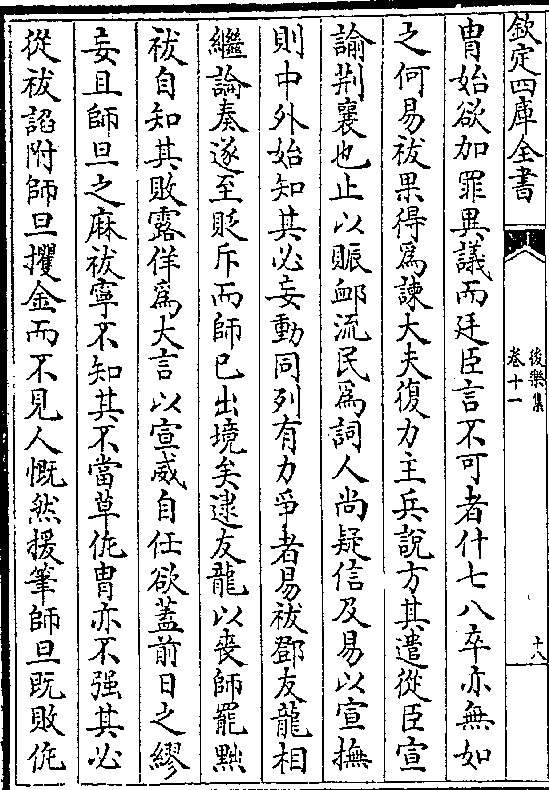 欽定四庫全書
後樂集
卷十一
十八
胄始欲加罪異議而廷臣言不可者什七八卒亦無如
之何易祓果得為諫大夫復力主兵說方其遣從臣宣
諭荆襄也止以賑䘏流民為詞人尚疑信及易以宣撫
則中外始知其必妄動同列有力爭者易祓鄧友龍相
繼論奏遂至貶斥而師已出境矣逮友龍以喪師罷黜
祓自知其敗露佯為大言以宣威自任欲蓋前日之繆
妄且師旦之麻祓寧不知其不當草侂胄亦不强其必
從祓諂附師旦攫金而不見人慨然援筆師旦既敗侂